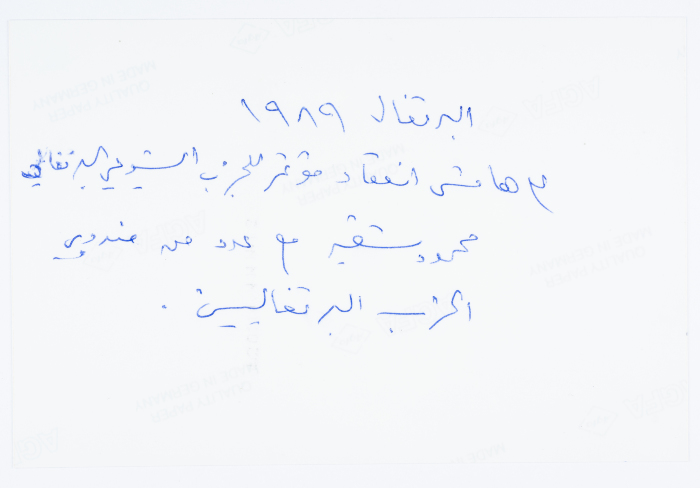 البرتغال ١٩٨٩
ع هامش انعقاد مؤتمر للحزب الشيوعي البرتغالي
محمود شقير مع عدد من مندوبي
الحزب البرتغاليين .